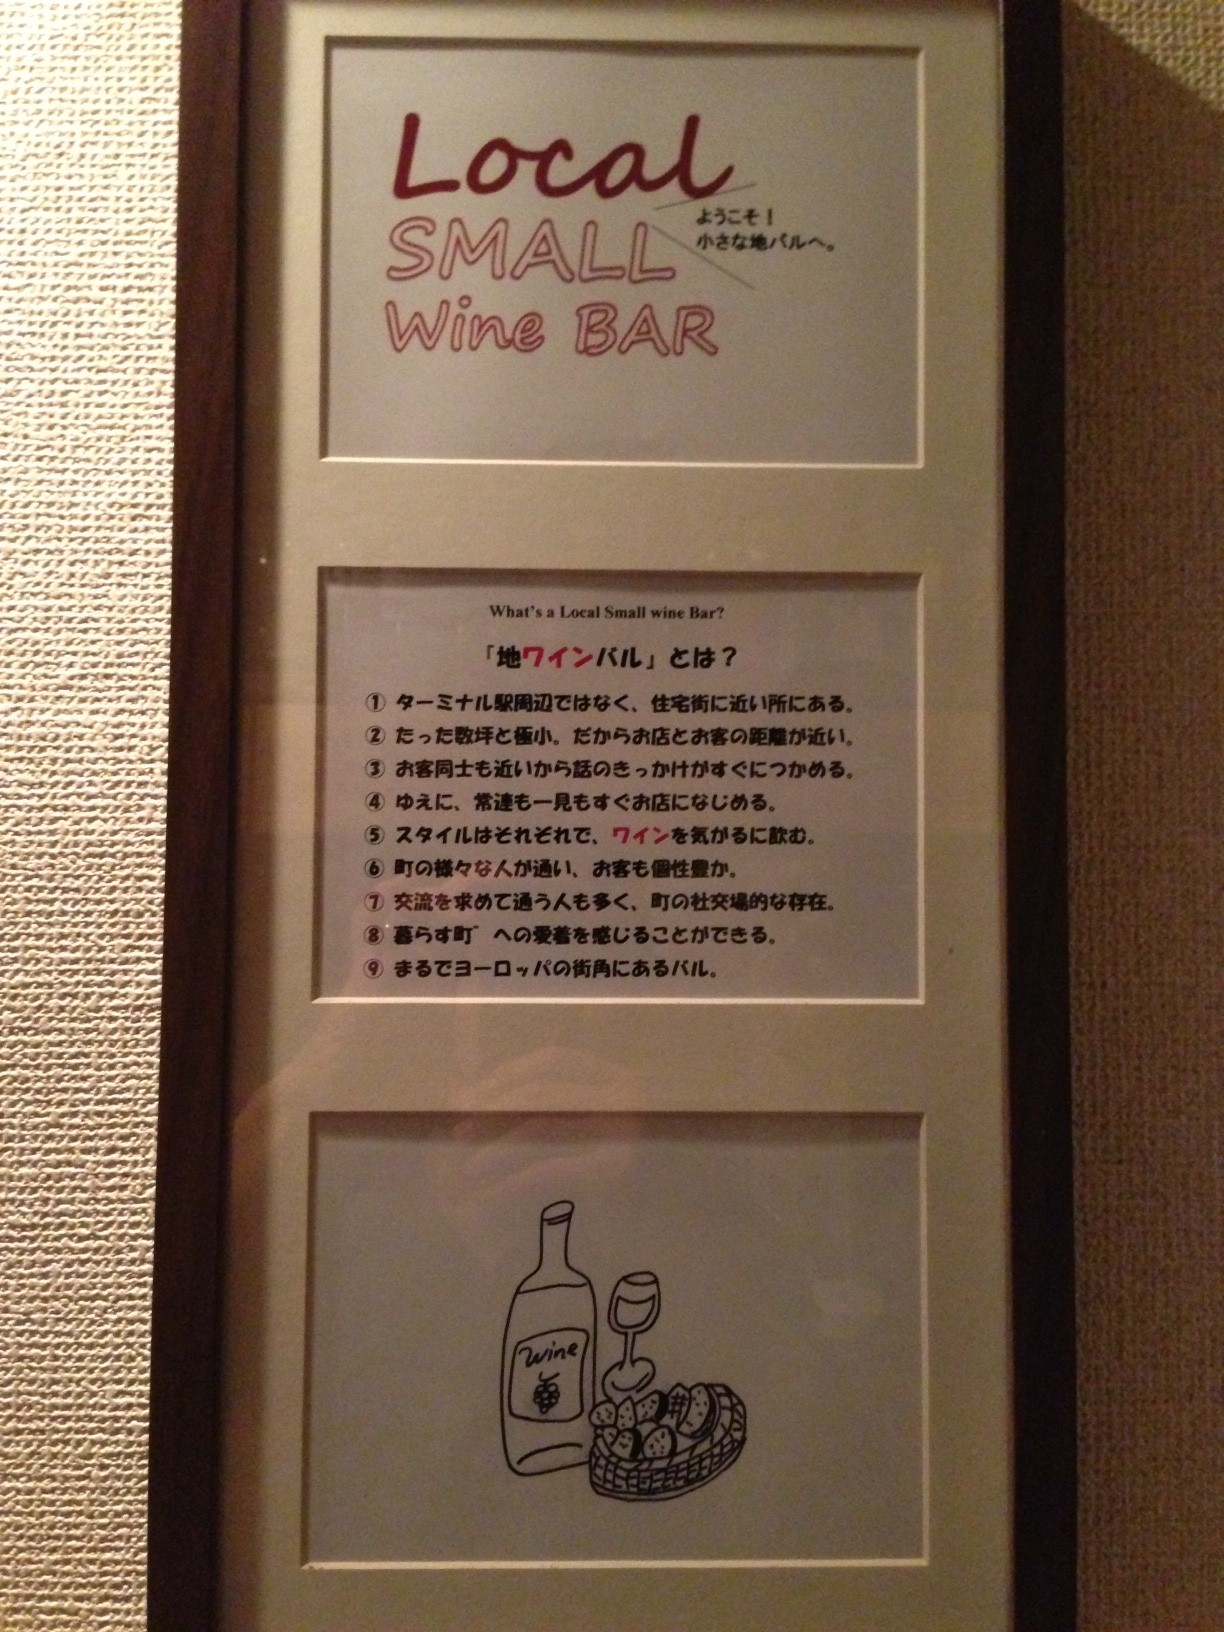 Local
SMALL
Wine BAR
ようこそ！
小さな地バルへ。
What's a Local Small wine Bar?
「地ワインバル」とは？
① ターミナル駅周辺ではなく、住宅街に近い所にある。
② たった数坪と極小。だからお店とお客の距離が近い。
③ お客同士も近いから話のきっかけがすぐにつかめる。
④ ゆえに、常連も一見もすぐお店になじめる。
⑤ スタイルはそれぞれで、ワインを気がるに飲む。
⑥ 町の様々な人が通い、お客も個性豊か。
⑦ 交流を求めて通う人も多く、町の社交場的な存在。
⑧ 暮らす町゛への愛着を感じることができる。
⑨ まるでヨーロッパの街角にあるバル。
wine